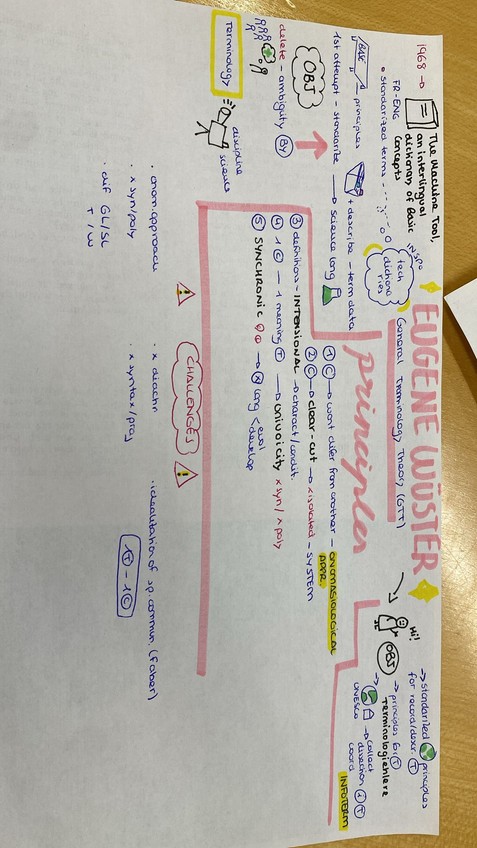 EUGENE WÜSTER
General Terminology Theory (GTT)
1968 →
The Machine Tool,
an interlingual
dictionary of Basic
Concepts
FR-ENG
• standardized terms
INSPO
tech
dictiona
ries
Hi!
OBJ
→ standardized principles
for record/descr. T
→ principles for T
Terminologielehre
→ UNESCO → collect
direction
coord
INFOTERM
BASE
principles
+ describe - term data
1st attempt - standarize → science lang
OBJ
delete - ambiguity BY
Terminology
discipline
science
principles
① C → wont difer from another - ONOMASIOLOGICAL
APPR.
② C → clear-cut → x isolated - SYSTEM
③ definitions - INTENSIONAL → charact/condit.
④ 1 C - 1 meaning T → univocity x syn / x poly
⑤ SYNCHRONIC → x lang < evol
develop
CHALLENGES
· onom.approach
· x syn/poly
· dif GL/SL
T / W
· x diachr
· x syntax/prag
· idealization of sp. commun. (Faber)
1T - 1C